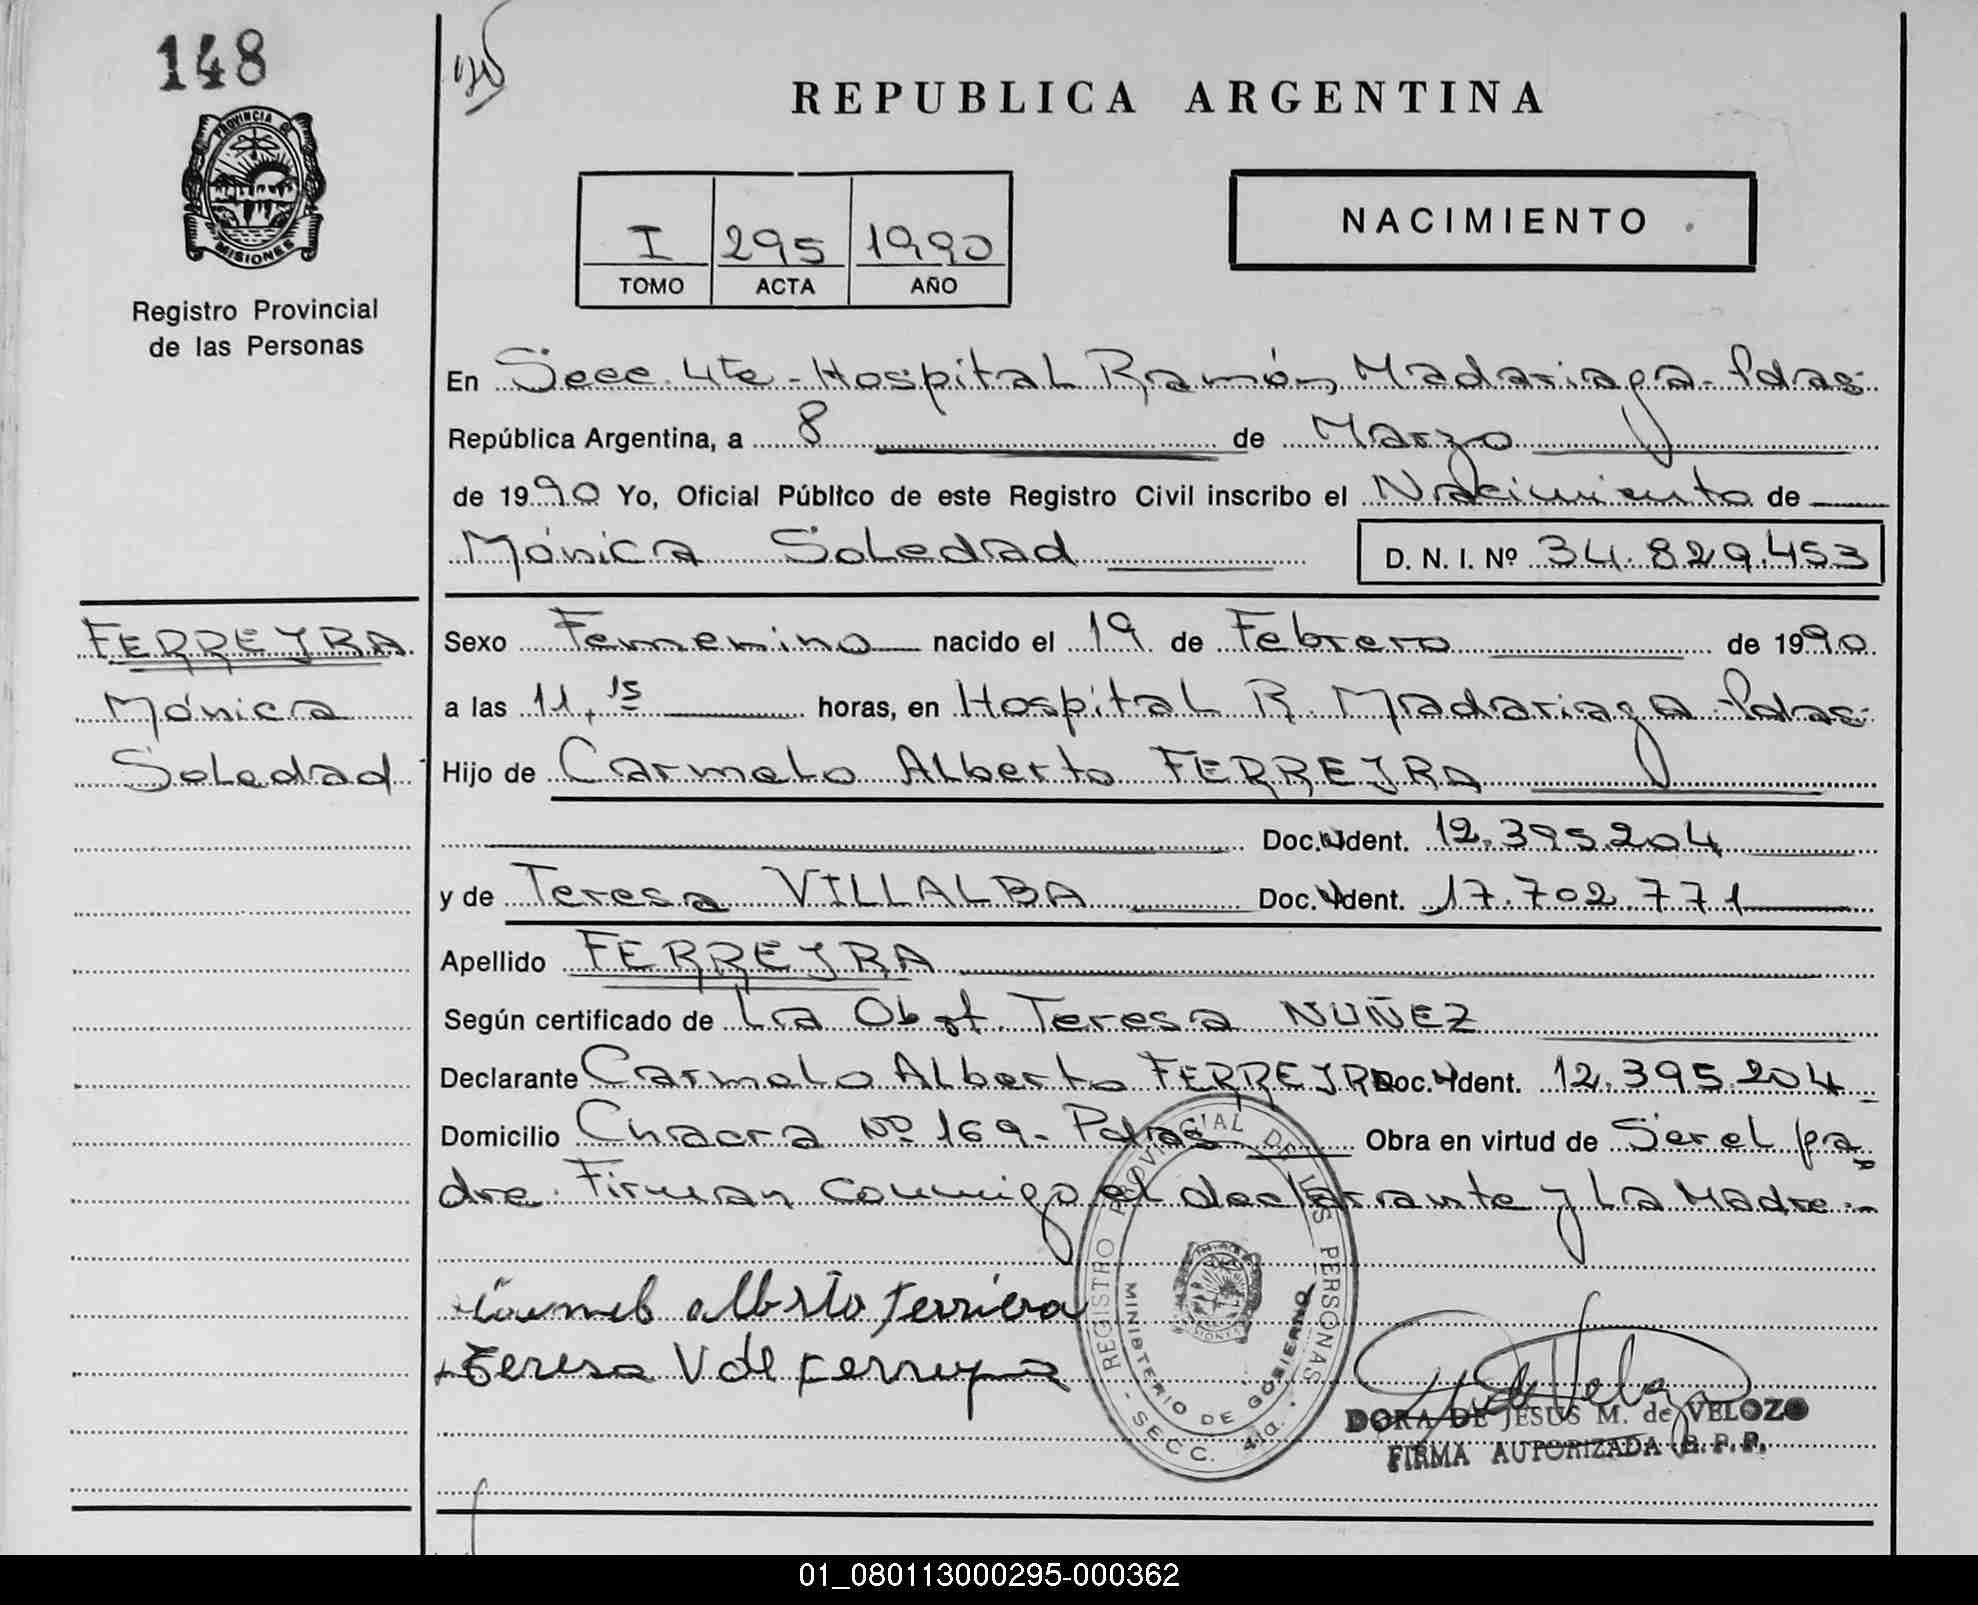 148
REPUBLICA ARGENTINA
PROVINCIA DE
MISIONES
Registro Provincial
de las Personas
I 295 1990
TOMO ACTA AÑO
NACIMIENTO
En Secc. 4ta - Hospital Ramón Madariaga - Pdas.
República Argentina, a 8 de Marzo
de 1990 Yo, Oficial Público de este Registro Civil inscribo el Nacimiento de
Mónica Soledad D. N. I. Nº 34.829.453
FERREYRA
Mónica
Soledad
Sexo Femenino nacido el 19 de Febrero de 1990
a las 11,15 horas, en Hospital R. Madariaga - Pdas.
Hijo de Carmelo Alberto FERREYRA
Doc. Ident. 12.395.204
y de Teresa VILLALBA Doc. Ident. 17.702.771
Apellido FERREYRA
Según certificado de La Obst. Teresa NUÑEZ
Declarante Carmelo Alberto FERREYRA Doc. Ident. 12.395.204
Domicilio Chacra Nº 169 - Pdas Obra en virtud de Ser el pa
dre. Firman conmigo el declarante y La Madre.-
alberto Ferriera
Teresa V de Ferreyra
REGISTRO PROVINCIAL DE LAS PERSONAS
MINISTERIO DE GOBIERNO
- SECC. 4ta. -
DORA DE JESUS M. de VELOZO
FIRMA AUTORIZADA R. P. P.
01_080113000295-000362